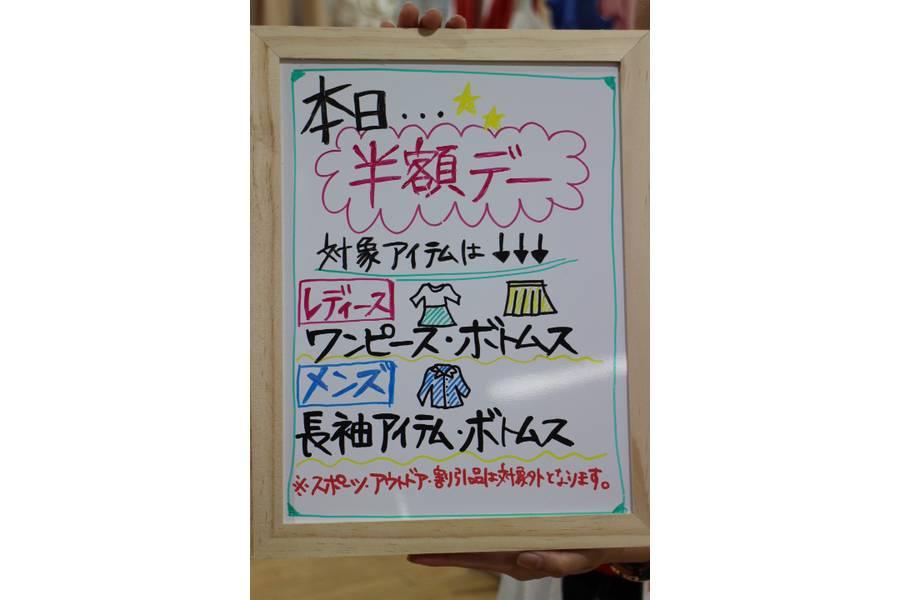 本日...
半額デー
対象アイテムは↓↓↓
レディース
ワンピース・ボトムス
メンズ
長袖アイテム・ボトムス
※スポーツ・アウトドア・割引品は対象外となります。